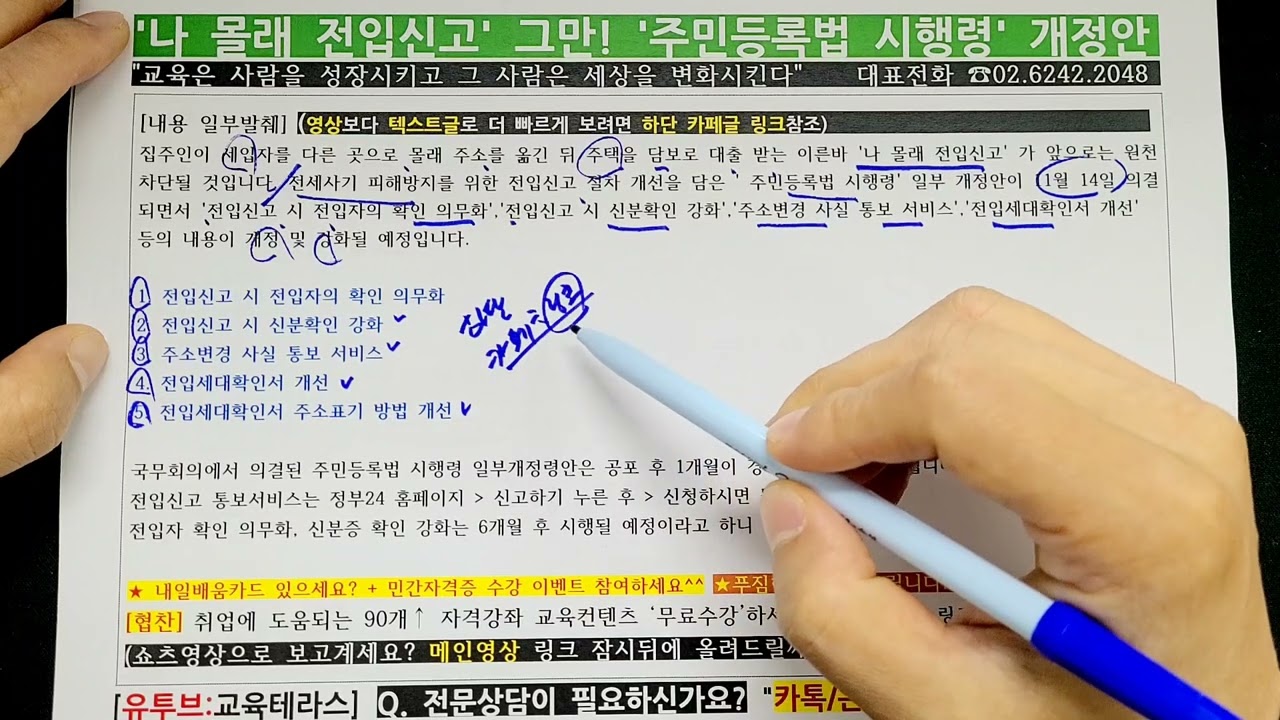 '나 몰래 전입신고' 그만! '주민등록법 시행령' 개정안
"교육은 사람을 성장시키고 그 사람은 세상을 변화시킨다" 대표전화 ☎02.6242.2048
[내용 일부발췌] (영상보다 텍스트글로 더 빠르게 보려면 하단 카페글 링크참조)
집주인이 세입자를 다른 곳으로 몰래 주소를 옮긴 뒤 주택을 담보로 대출 받는 이른바 '나 몰래 전입신고' 가 앞으로는 원천
차단될 것입니다. 전세사기 피해방지를 위한 전입신고 절차 개선을 담은 ' 주민등록법 시행령' 일부 개정안이 11월 14일 의결
되면서 '전입신고 시 전입자의 확인 의무화','전입신고 시 신분확인 강화','주소변경 사실 통보 서비스','전입세대확인서 개선'
등의 내용이 개정 및 강화될 예정입니다.
1 전입신고 시 전입자의 확인 의무화
2 전입신고 시 신분확인 강화
3 주소변경 사실 통보 서비스
4. 전입세대확인서 개선
5 전입세대확인서 주소표기 방법 개선
국무회의에서 의결된 주민등록법 시행령 일부개정령안은 공포 후 1개월이
전입신고 통보서비스는 정부24 홈페이지 > 신고하기 누른 후 > 신청하시면
전입자 확인 의무화, 신분증 확인 강화는 6개월 후 시행될 예정이라고 하니
★ 내일배움카드 있으세요? + 민간자격증 수강 이벤트 참여하세요^^ ★푸짐
[협찬] 취업에 도움되는 90개↑ 자격강좌 교육컨텐츠 '무료수강'하
(쇼츠영상으로 보고계세요? 메인영상 링크 잠시뒤에 올려드릴
[유투브:교육테라스] Q. 전문상담이 필요하신가요? "카톡/